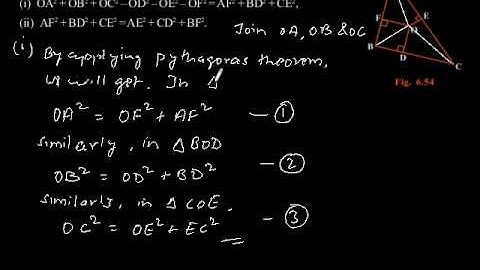 (i) OA² + OB² + OC² – OD² – OE² – OF² = AF² + BD² + CE²,
(ii) AF² + BD² + CE² = AE² + CD² + BF².
Join OA, OB & OC
F
E
O
B
D
C
Fig. 6.54
(i) By applying pythagoras theorem,
we will get. In Δ
OA² = OF² + AF² — ①
similarly, in ΔBOD
OB² = OD² + BD² — ②
similarly, in ΔCOE.
OC² = OE² + EC² — ③